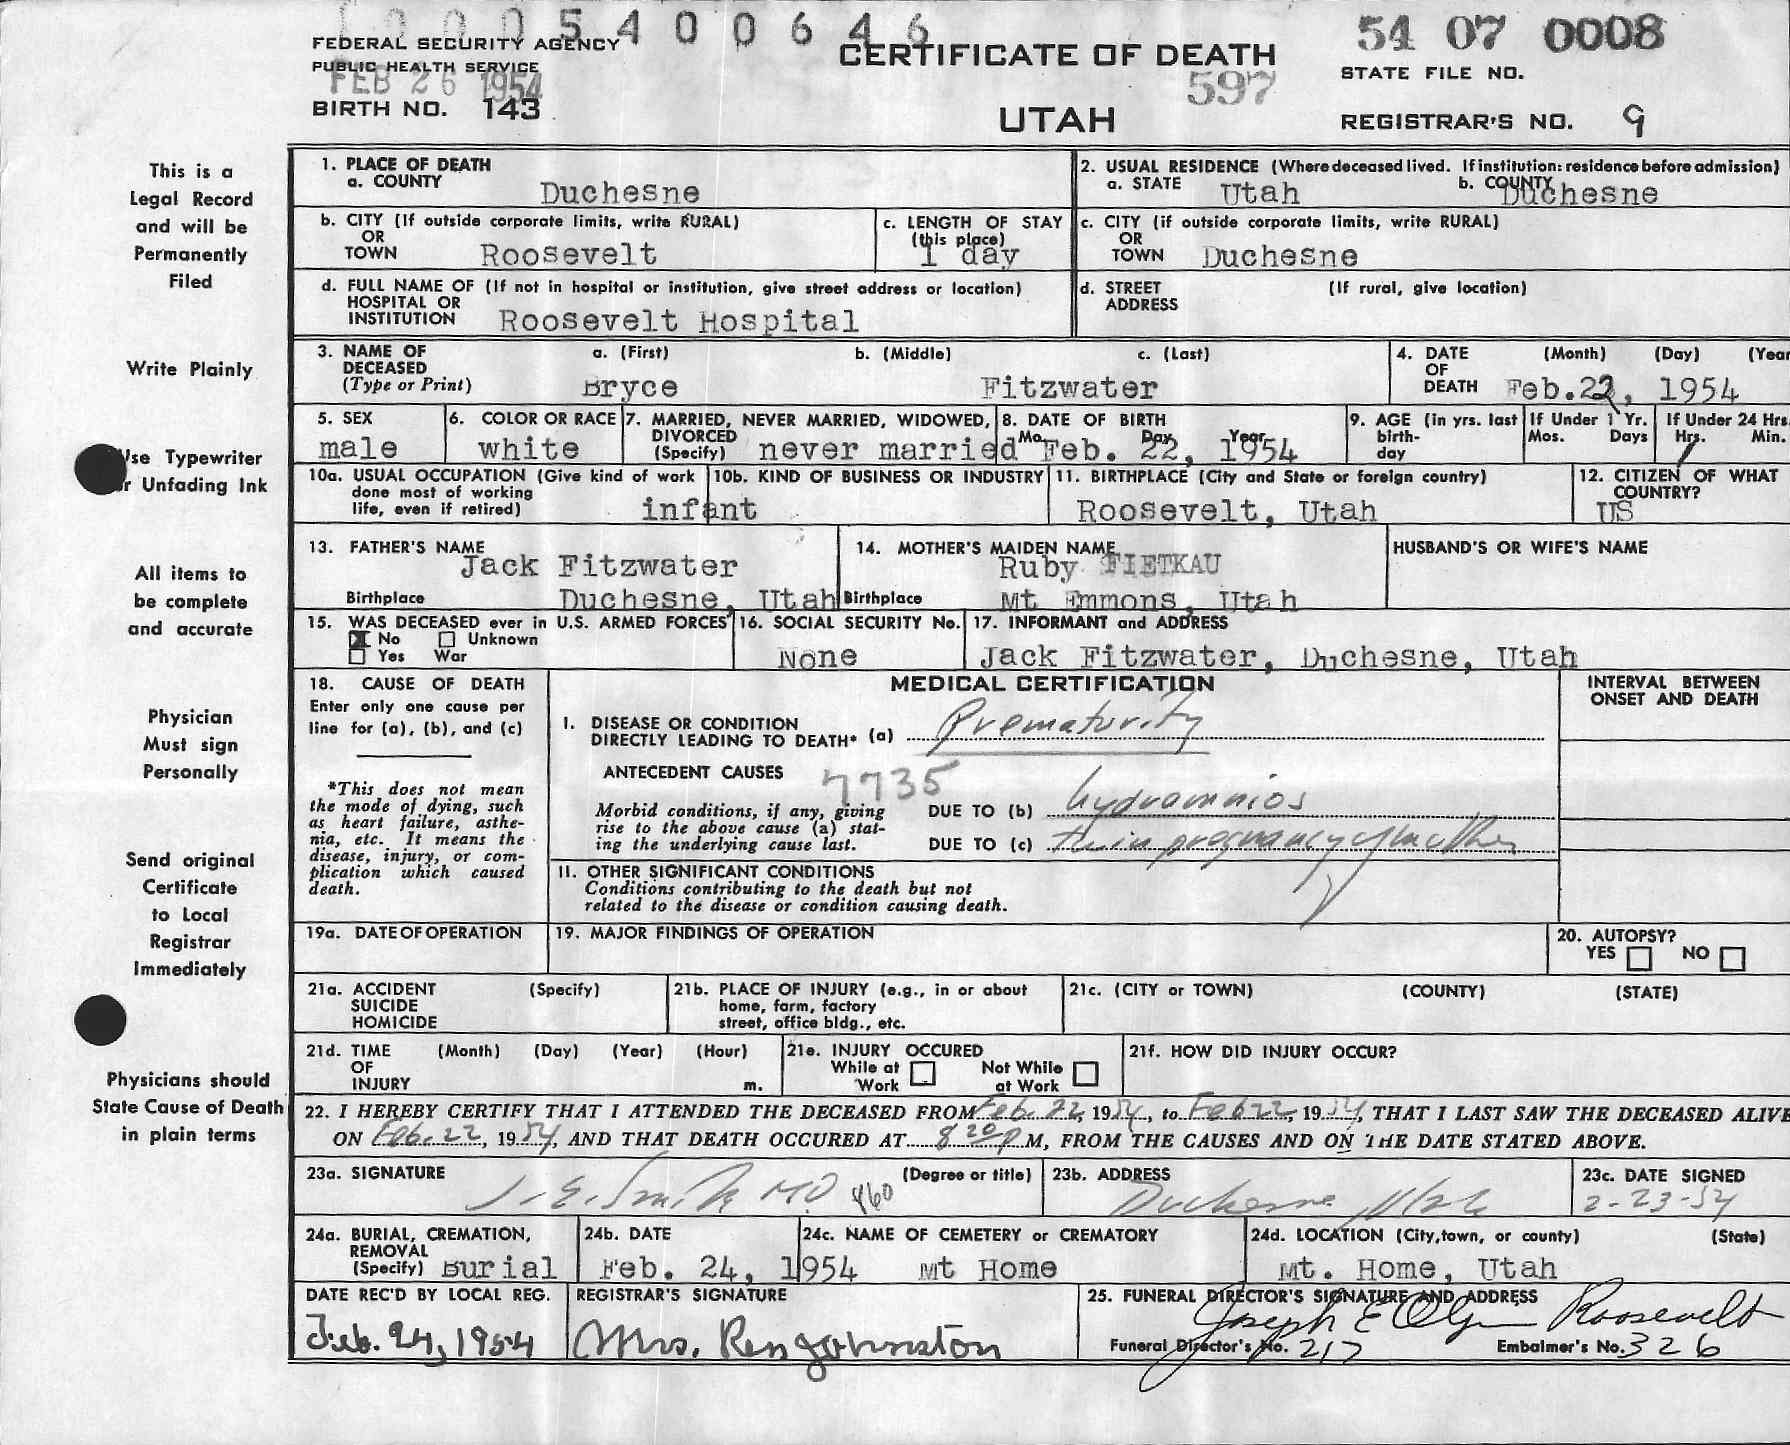 10005400646
54 07 0008
FEDERAL SECURITY AGENCY
PUBLIC HEALTH SERVICE
FEB 26 1954
BIRTH NO. 143
CERTIFICATE OF DEATH
597
UTAH
STATE FILE NO.
REGISTRAR'S NO. 9
This is a
Legal Record
and will be
Permanently
Filed
Write Plainly
Use Typewriter
or Unfading Ink
All items to
be complete
and accurate
Physician
Must sign
Personally
Send original
Certificate
to Local
Registrar
Immediately
Physicians should
State Cause of Death
in plain terms
1. PLACE OF DEATH
a. COUNTY Duchesne
2. USUAL RESIDENCE (Where deceased lived. If institution: residence before admission)
a. STATE Utah b. COUNTY Duchesne
b. CITY (If outside corporate limits, write RURAL)
OR
TOWN Roosevelt
c. LENGTH OF STAY
(this place)
1 day
c. CITY (if outside corporate limits, write RURAL)
OR
TOWN Duchesne
d. FULL NAME OF (If not in hospital or institution, give street address or location)
HOSPITAL OR
INSTITUTION Roosevelt Hospital
d. STREET (If rural, give location)
ADDRESS
3. NAME OF DECEASED
(Type or Print)
a. (First) b. (Middle) c. (Last)
Bryce Fitzwater
4. DATE OF DEATH (Month) (Day) (Year
Feb.22, 1954
5. SEX
male
6. COLOR OR RACE
white
7. MARRIED, NEVER MARRIED, WIDOWED,
DIVORCED
(Specify) never married
8. DATE OF BIRTH
Mo. Day Year
Feb. 22, 1954
9. AGE (in yrs. last
birth-
day
If Under 1 Yr.
Mos. Days
If Under 24 Hrs.
Hrs. Min.
10a. USUAL OCCUPATION (Give kind of work
done most of working
life, even if retired) infant
10b. KIND OF BUSINESS OR INDUSTRY
11. BIRTHPLACE (City and State or foreign country)
Roosevelt, Utah
12. CITIZEN OF WHAT
COUNTRY?
US
13. FATHER'S NAME
Jack Fitzwater
Birthplace Duchesne, Utah
14. MOTHER'S MAIDEN NAME
Ruby FIETKAU
Birthplace Mt Emmons, Utah
HUSBAND'S OR WIFE'S NAME
15. WAS DECEASED ever in U.S. ARMED FORCES
No Unknown
Yes War
16. SOCIAL SECURITY No.
None
17. INFORMANT and ADDRESS
Jack Fitzwater, Duchesne, Utah
18. CAUSE OF DEATH
Enter only one cause per
line for (a), (b), and (c)
*This does not mean
the mode of dying, such
as heart failure, asthe-
nia, etc. It means the
disease, injury, or com-
plication which caused
death.
MEDICAL CERTIFICATION
INTERVAL BETWEEN
ONSET AND DEATH
I. DISEASE OR CONDITION
DIRECTLY LEADING TO DEATH* (a) Prematurity
ANTECEDENT CAUSES 7735
Morbid conditions, if any, giving
rise to the above cause (a) stat-
ing the underlying cause last.
DUE TO (b) hydramnios
DUE TO (c) twin pregnancy of mother
11. OTHER SIGNIFICANT CONDITIONS
Conditions contributing to the death but not
related to the disease or condition causing death.
19a. DATE OF OPERATION
19. MAJOR FINDINGS OF OPERATION
20. AUTOPSY?
YES NO
21a. ACCIDENT (Specify)
SUICIDE
HOMICIDE
21b. PLACE OF INJURY (e.g., in or about
home, farm, factory
street, office bldg., etc.
21c. (CITY or TOWN) (COUNTY) (STATE)
21d. TIME (Month) (Day) (Year) (Hour)
OF
INJURY m.
21e. INJURY OCCURED
While at Work
Not While at Work
21f. HOW DID INJURY OCCUR?
22. I HEREBY CERTIFY THAT I ATTENDED THE DECEASED FROM Feb. 22, 1954, to Feb 22, 1954, THAT I LAST SAW THE DECEASED ALIVE
ON Feb. 22, 1954, AND THAT DEATH OCCURED AT 8 20 P M, FROM THE CAUSES AND ON THE DATE STATED ABOVE.
23a. SIGNATURE (Degree or title)
J. E. Smith MD 460
23b. ADDRESS
Duchesne, Utah
23c. DATE SIGNED
2-23-54
24a. BURIAL, CREMATION,
REMOVAL
(Specify) Burial
24b. DATE
Feb. 24, 1954
24c. NAME OF CEMETERY or CREMATORY
Mt Home
24d. LOCATION (City, town, or county) (State)
Mt. Home, Utah
DATE REC'D BY LOCAL REG.
Feb. 24, 1954
REGISTRAR'S SIGNATURE
Mrs. Ren Johnston
25. FUNERAL DIRECTOR'S SIGNATURE AND ADDRESS
Joseph E Olsen Roosevelt
Funeral Director's No. 217 Embalmer's No. 326